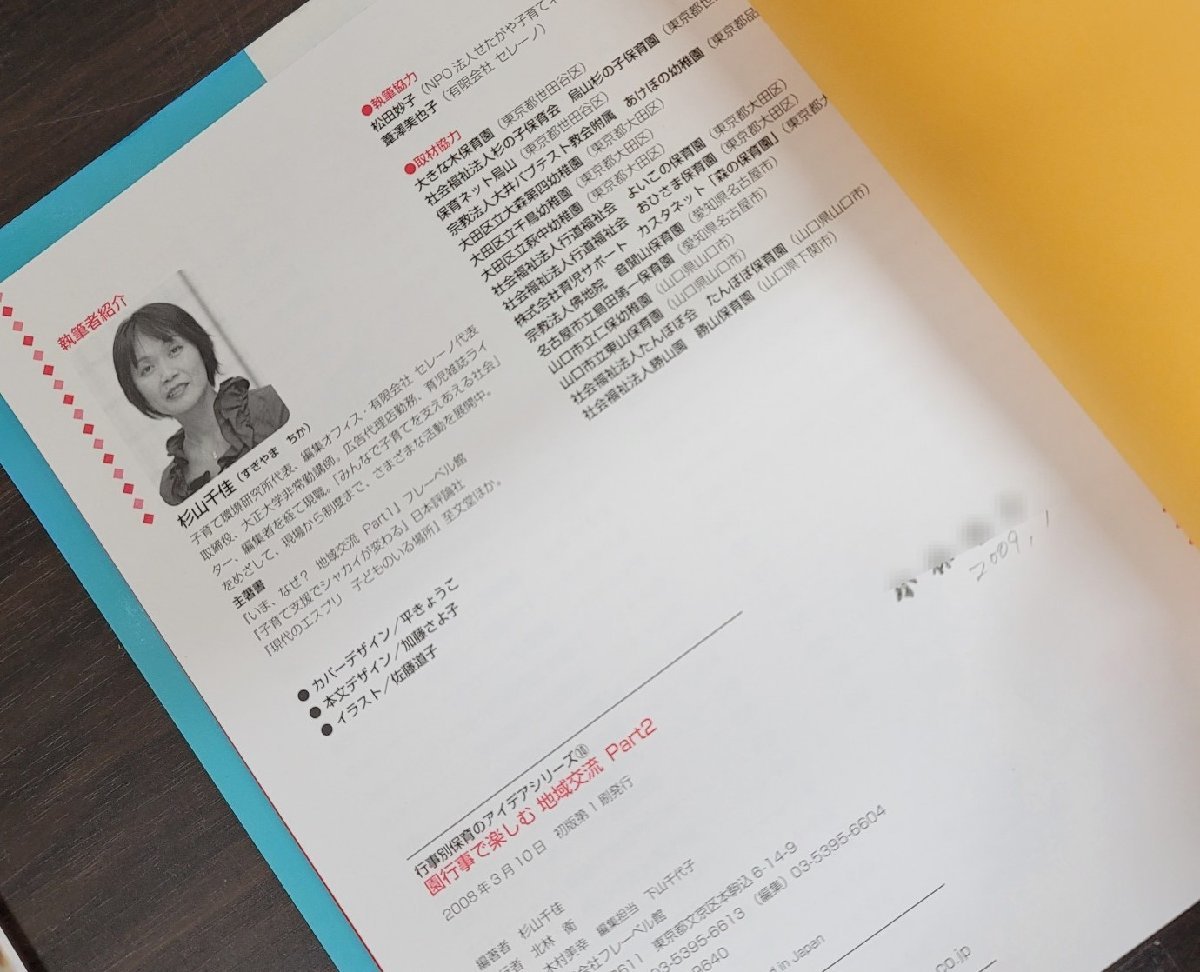 ●執筆協力
松田妙子（NPO法人せたがや子育て
蓮澤美也子（有限会社 セレーノ）
●取材協力
大きな木保育園（東京都世田谷区）
社会福祉法人杉の子保育会 烏山杉の子保育園（東京都世
保育ネット烏山（東京都世田谷区）
宗教法人大井バプテスト教会附属 あけぼの幼稚園（東京都品
大田区立大森第四幼稚園（東京都大田区）
大田区立千鳥幼稚園（東京都大田区）
大田区立萩中幼稚園（東京都大田区）
社会福祉法人行道福祉会 よいこの保育園（東京都大田区）
社会福祉法人行道福祉会 おひさま保育園（東京都大田区）
株式会社育児サポート カスタネット「森の保育園」（東京都大
宗教法人佛地院 音聞山保育園（愛知県名古屋市）
名古屋市立島田第一保育園（愛知県名古屋市）
山口市立仁保幼稚園（山口県山口市）
山口市立東山保育園（山口県山口市）
社会福祉法人たんぽぽ会 たんぽぽ保育園（山口県山口市）
社会福祉法人勝山園 勝山保育園（山口県下関市）
執筆者紹介
杉山千佳（すぎやま ちか）
子育て環境研究所代表、編集オフィス・有限会社 セレーノ代表
取締役、大正大学非常勤講師。広告代理店勤務、育児雑誌ライ
ター、編集者を経て現職。「みんなで子育てを支えあえる社会」
をめざして、現場から制度まで、さまざまな活動を展開中。
主著書
『いま、なぜ？ 地域交流 Part1』フレーベル館
『子育て支援でシャカイが変わる』日本評論社
『現代のエスプリ 子どものいる場所』至文堂ほか。
●カバーデザイン／平きょうこ
●本文デザイン／加藤さよ子
●イラスト／佐藤道子
2009, 1
行事別保育のアイデアシリーズ⑩
園行事で楽しむ 地域交流 Part2
2008年3月10日 初版第1刷発行
編著者 杉山千佳
行者 北林 衛
木村美幸 編集担当 下山千代子
会社フレーベル館
8611 東京都文京区本駒込6-14-9
03-5395-6613 （編集）03-5395-6604
9640
d in Japan
co.jp